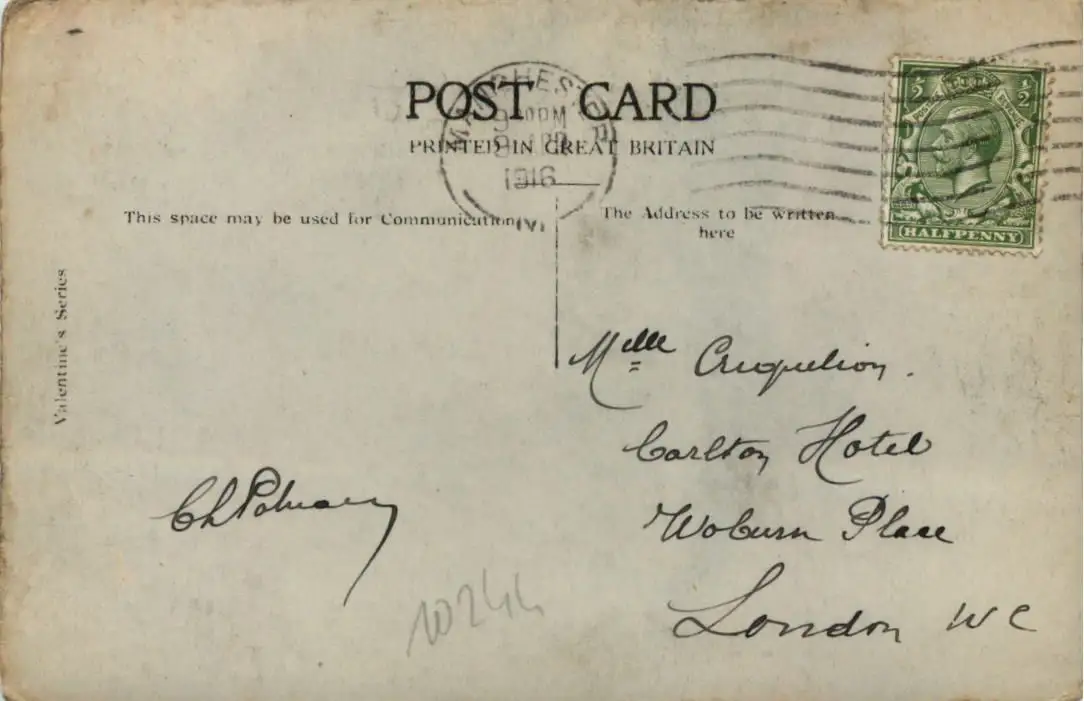 POST CARD
PRINTED IN GREAT BRITAIN
MANCHESTER
9 PM
9 APR
1916
½ ½
POSTAGE REVENUE
HALFPENNY
This space may be used for Communication
The Address to be written
here
Valentine's Series
Melle
Carlton Hotel
Woburn Place
London WC
Ch
10244